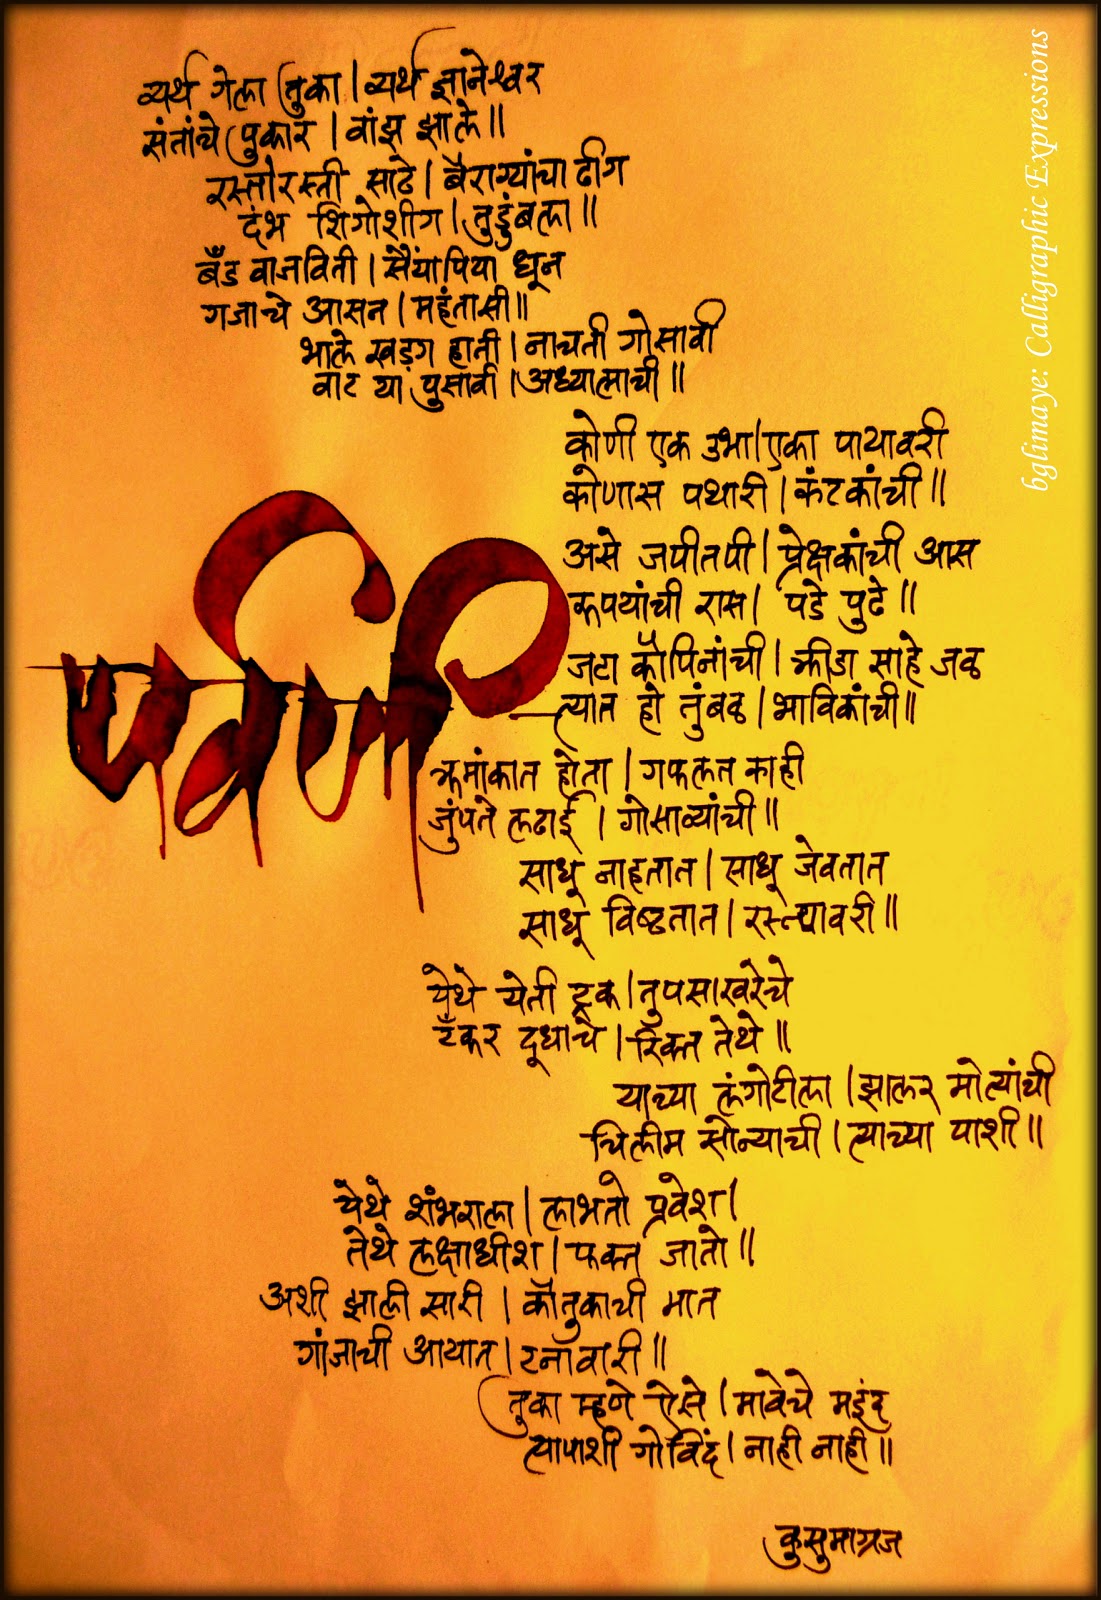 bglimaye: Calligraphic Expressions
व्यर्थ गेला तुका । व्यर्थ ज्ञानेश्वर
संतांचे पुकार । वांझ झाले ॥
रस्तोरस्ती साठे । बैराग्यांचा ढीग
दंभ शिगोशीग । तुडुंबला ॥
बँड वाजविती । सैंयापिया धून
गजाचे आसन । महंतासी ॥
भाले खड्ग हाती । नाचती गोसावी
वाट या पुसावी । अध्यात्माची ॥
कोणी एक उभा । एका पायावरी
कोणास पथारी । कंटकांची ॥
असे जपीतपी । प्रेक्षकांची आस
रुपयांची रास । पडे पुढे ॥
जटा कौपिनांची । क्रीडा साहे जळ
त्यात हो तुंबळ । भाविकांची ॥
पर्वणी
क्रमांकात होता । गफलत काही
जुंपते लढाई । गोसाव्यांची ॥
साधू नाहतात । साधू जेवतात
साधू विष्ठतात । रस्त्यावरी ॥
येथे येती ट्रक । तुपसाखरेचे
टँकर दूधाचे । रिक्त तेथे ॥
याच्या लंगोटीला । झालर मोत्यांची
चिलीम सोन्याची । त्याच्या पाशी ॥
येथे शंभराला । लाभतो प्रवेश ।
तेथे लक्षाधीश । फक्त जातो ॥
अशी झाली सारी । कौतुकाची मात
गांजाची आयात । टनावारी ॥
तुका म्हणे ऐसे । मावेचे मइंद
त्यापाशी गोविंद । नाही नाही ॥
कुसुमाग्रज